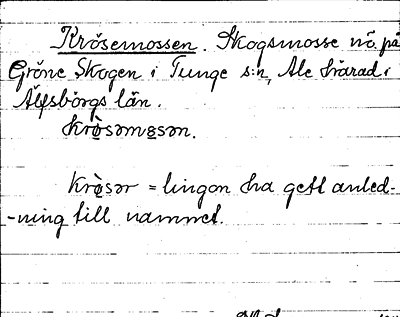 Krösemossen. Skogsmosse nö. på
Gröne Skogen i Tunge s:n, Ale härad i
Älfsborgs län.
krø̀səmɔsən.
krø̀sər = lingon ha gett anled-
-ning till namnet.